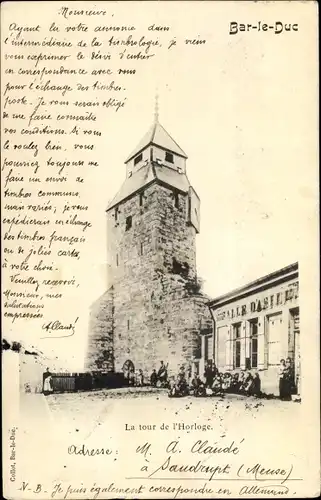 Bar-le-Duc
Monsieur.
Ayant lu votre annonce dans
l'intermédiaire de la timbrologie, je viens
vous exprimer le désir d'entrer
en correspondance avec vous
pour l'échange des timbres-
poste. Je vous serais obligé
de me faire connaître
vos conditions. Si vous
le voulez bien, vous
pourriez toujours me
faire un envoi de
timbres communs
mais variés; je vous
expédierais en échange
des timbres français
ou de jolies cartes
à votre choix.
Veuillez recevoir,
Monsieur, mes
salutations
empressées
A. Claudé
SALLE D'ASILE
La tour de l'Horloge.
Adresse: M. A. Claudé
à Saudrupt (Meuse)
N-B. Je puis également correspondre en Allemand.
Collot, Bar-le-Duc.